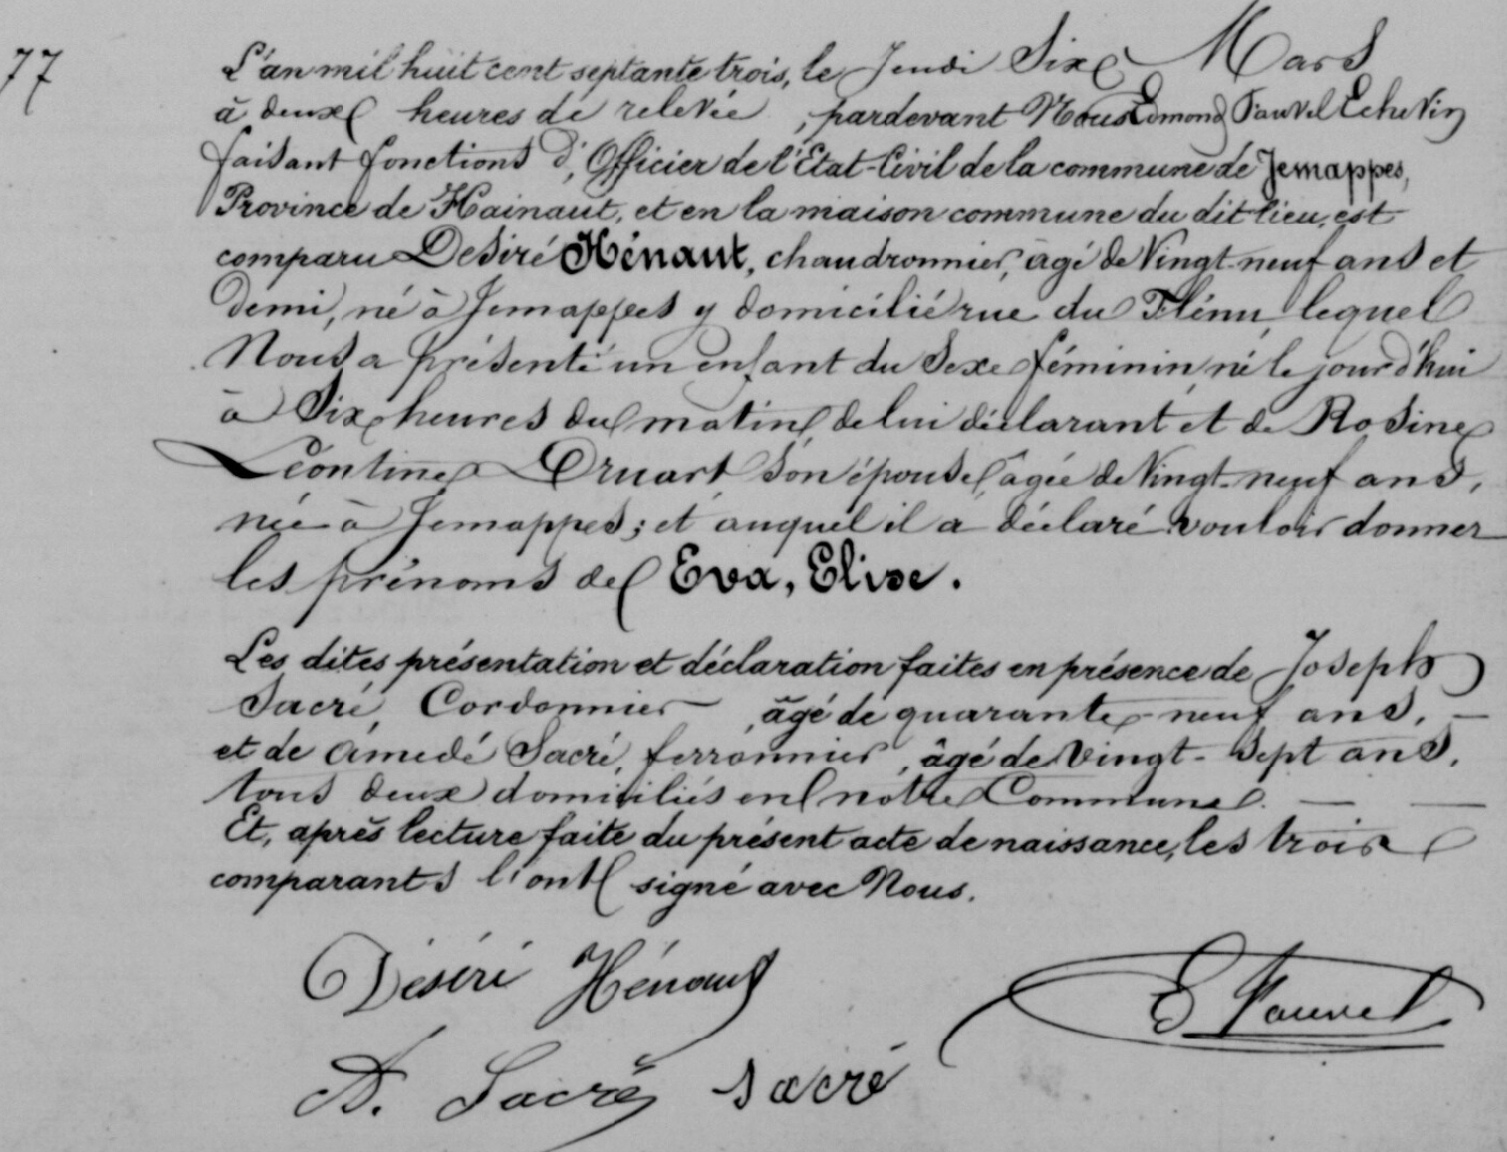 77
L'an mil huit cent septante trois, le Jeudi Six Mars
à deux heures de relevée, pardevant Nous Edmond Fauvel Echevin
faisant fonctions d', Officier de l'Etat-Civil de la commune de Jemappes,
Province de Hainaut, et en la maison commune du dit lieu, est
comparu Desiré Hénaut, chaudronnier, âgé de Vingt-neuf ans et
demi, né à Jemappes y domicilié rue du Flénu, lequel
Nous a présenté un enfant du Sexe féminin, né le jourd'hui
à Six heures du matin, de lui déclarant et de Rosine
Léontine Druart son épouse, âgée de Vingt-neuf ans,
née à Jemappes; et auquel il a déclaré vouloir donner
les prénoms de Eva, Elise.
Les dites présentation et déclaration faites en présence de Joseph
Sacré, Cordonnier, âgé de quarante-neuf ans, —
et de Amedé Sacré, ferronnier, âgé de Vingt-Sept ans,
tous deux domiciliés en notre Commune. — —
Et, après lecture faite du présent acte de naissance, les trois
comparants l'ont signé avec Nous.
Désiré Hénaut
E Fauvel
A. Sacré Sacré